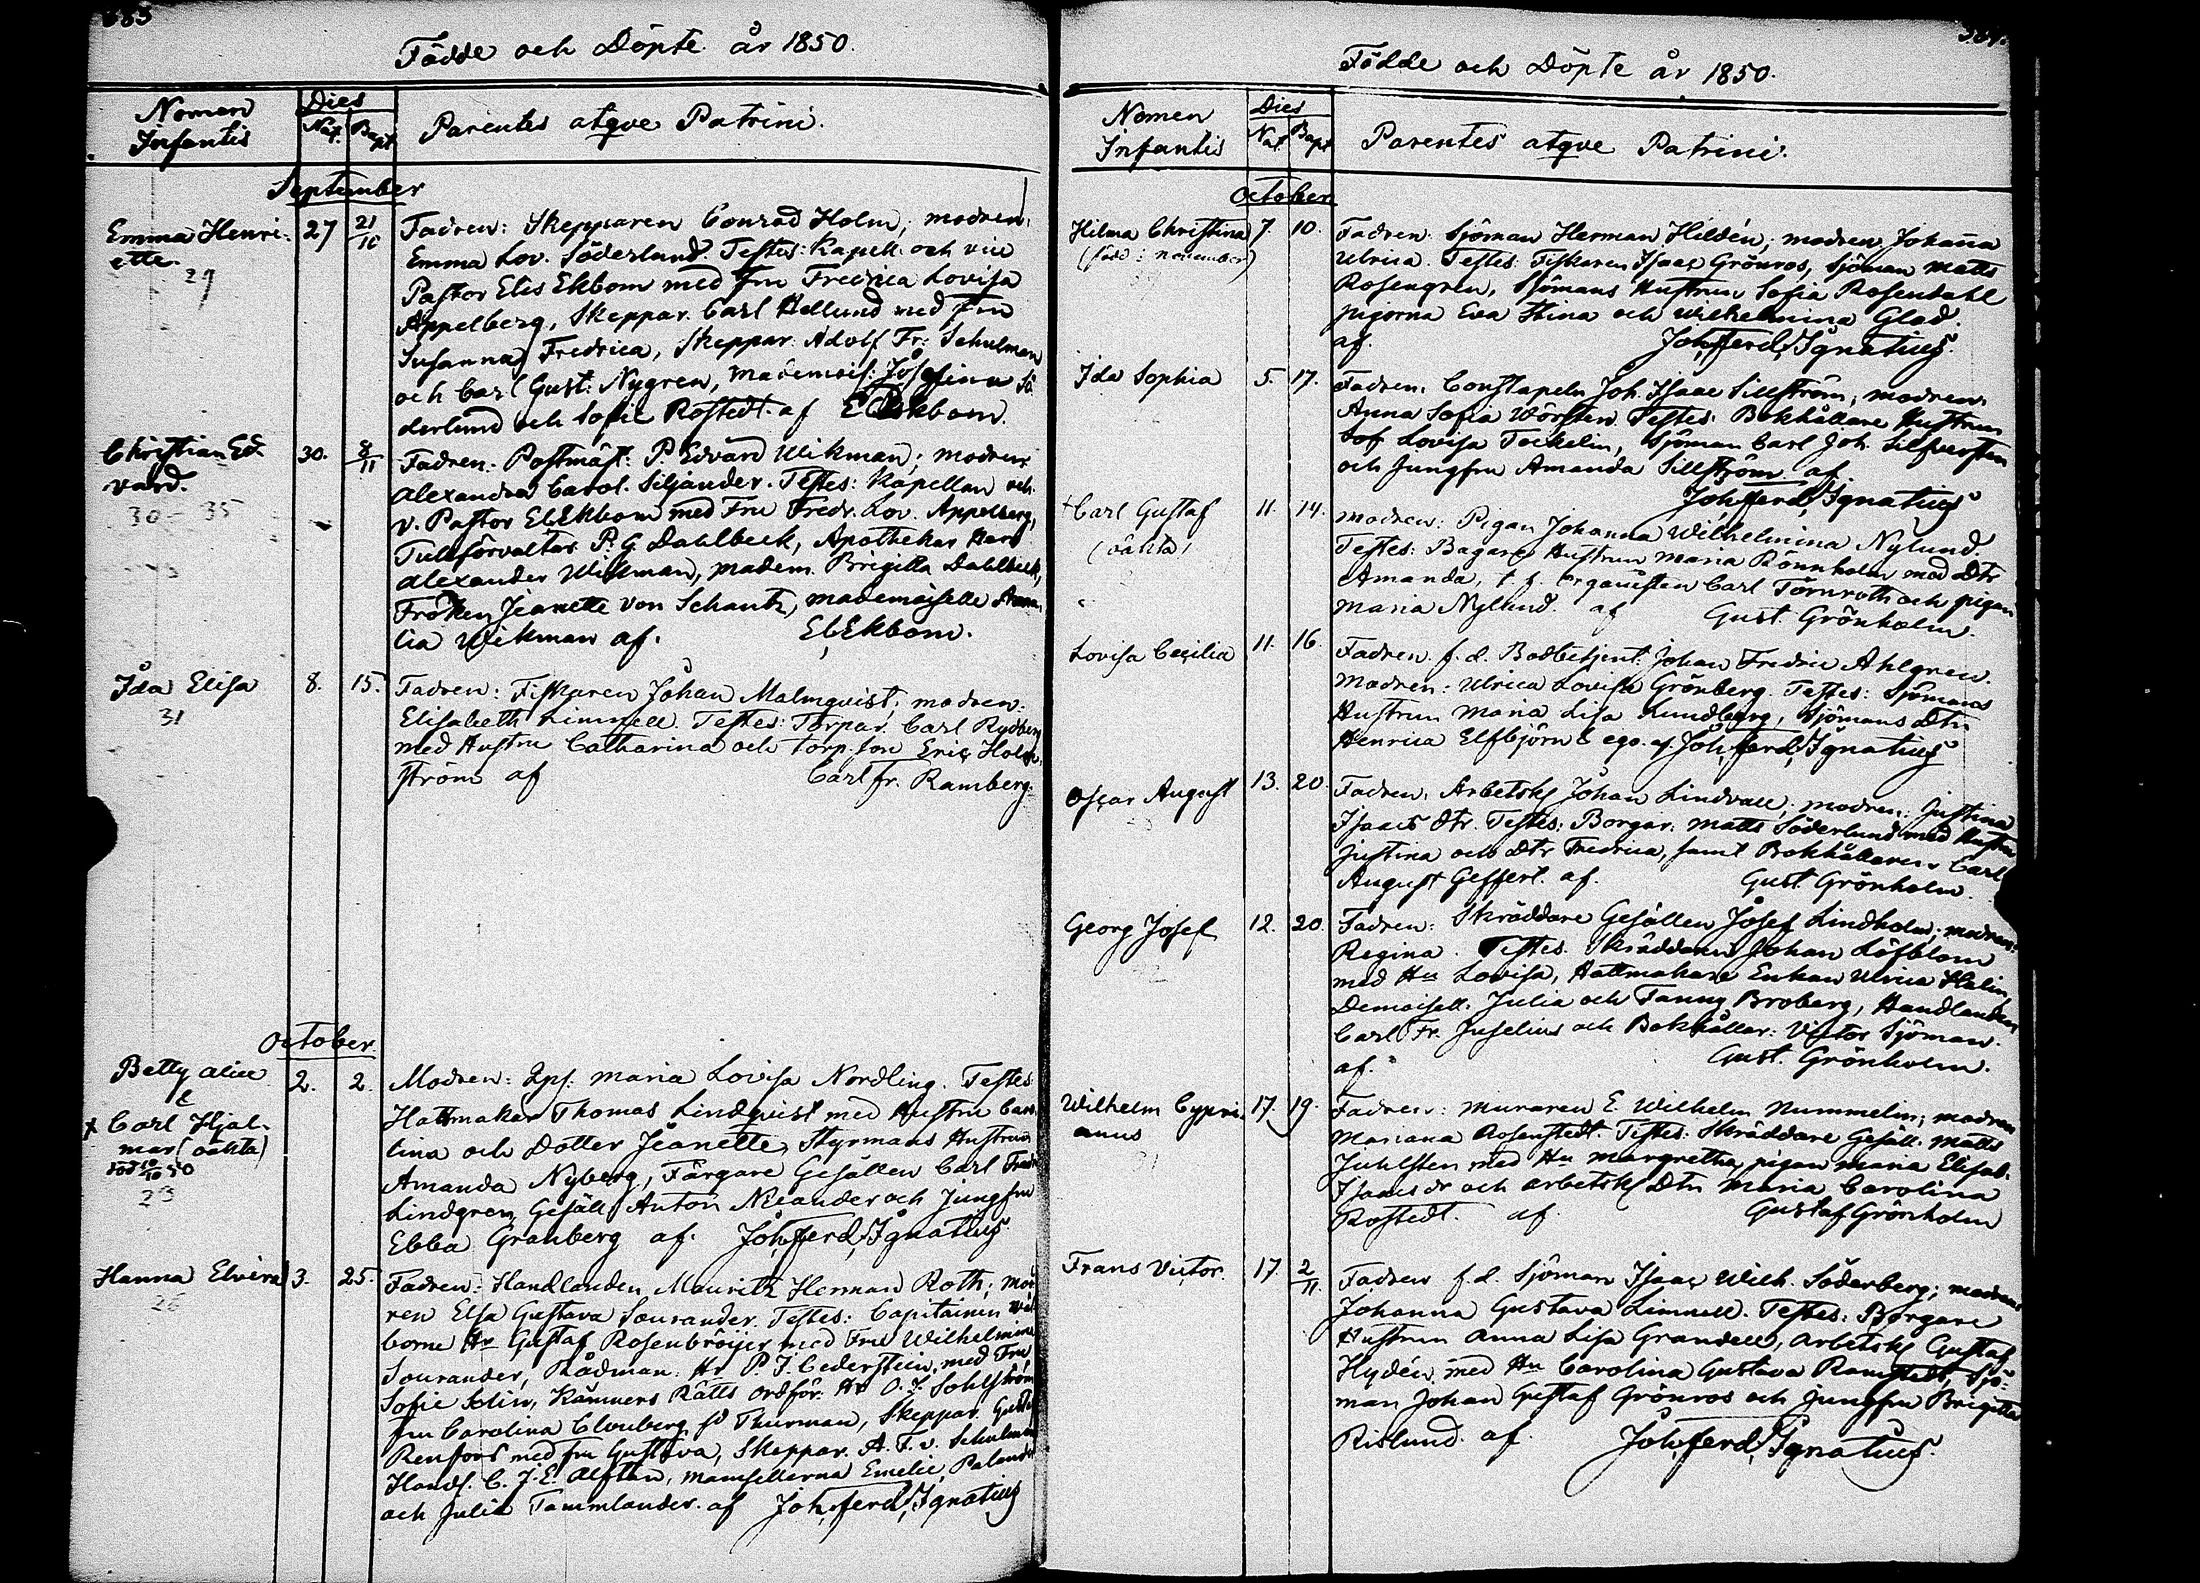 383
Födde och Döpte år 1850.
Nomen Infantis
Dies
Nat. Bapt
Parentes atqve Patrini.
September
Emma Henri-
ette.
29
27
21/10
Fadren: Skepparen Conrad Holm; modren:
Emma Lov. Söderlund. Testes: Kapell. och vice
Pastor Elis Ekbom med Fru Fredrica Lovisa
Appelberg, Skeppar. Carl Hellund med Fru
Susanna Fredrica, Skeppar. Adolf Fr: Schulman
och Carl Gust: Nygren, Mademois: Josefina Sö
derlund och Sofie Rostedt. af E Ekbom.
Christian Ed
vard.
30 - 35
30.
8/11
Fadren. Postmäst: P. Edvard Wikman; modren:
Alexandra Carol. Siljander. Testes: Kapellan och
v. Pastor El. Ekbom med Fru Fredr. Lov. Appelberg,
Tullförvaltar P. G. Dahlbeck, Apothekar Herr
Alexander Wikman, madem. Brigitta Dahlbeck,
Fröken Jeanette von Schantz, mademoiselle Ama
lia Wikman af. El. Ekbom.
Ida Elisa
31
8.
15.
Fadren: Fiskaren Johan Malmqvist; modren:
Elisabeth Limnell. Testes: Torpar. Carl Rydberg
med Hustru Catharina och Torp. son Eric Holm
ström af Carl Fr. Ramberg.
October.
Betty Alice
&
+ Carl Hjal-
mar (oäkta)
23
2.
2.
Modren: Maria Lovisa Nordling. Testes:
Hattmakar Thomas Lindqvist med Hustru Caro
lina och Dotter Jeanette, Styrmans Hustrun
Amanda Nyberg, Färgare Gesällen Carl Fredr
Lindgren, Gesäll. Anton Neander och Jungfru
Ebba Granberg af. Joh. Ferd. Ignatius
Hanna Elvira
26
3.
25.
Fadren: Handlanden Mauritz Herman Roth; mod
ren Elsa Gustava Sourander. Testes: Capitainen väl
borne Hr Gustaf Rosenbröijer med Fru Wilhelmina
Sourander, Rådman. Hr P. J. Cederstein. med Fru
Sofie Solin, Kämners Rätts ordför. Hr O. J. Sohlström
fru Carolina Clouberg fd Thurman, Skeppar. Gustaf
Renfors med fru Gustava, Skeppar. A. F. v. Schulman
Handl. C. J. E. Alftan, mamsellerna Emelie Palander
och Julia Tammlander. af Joh. Ferd. Ignatius
Födde och Döpte år 1850.
Nomen Infantis
Dies
Nat Bapt
Parentes atqve Patrini.
October
Hilma Christina
(född i november)
7.
10.
Fadren: Sjöman Herman Hildén; modren Johanna
Ulrica. Testes: Fiskaren Isaac Grönros, Sjöman Matts
Rosengren, Sjömans Hustrun Sofia Rosendahl
pigorna Eva Stina och Wilhelmina Glad.
af. Joh. Ferd. Ignatius.
Ida Sophia
5.
17.
Fadren: Constapeln Joh. Isaac Sillström; modren:
Anna Sofia Worsten. Testes: Bokhållare Hustrun
Sof. Lovisa Tockelin, Sjöman Carl Joh. Silfversten
och Jungfru Amanda Sillström af
Joh. Ferd. Ignatius
+ Carl Gustaf
(oäkta)
11.
14.
Modren: Pigan Johanna Wilhelmina Nylund.
Testes: Bagare Hustrun Maria Rönnholm med Dtr
Amanda, t. f. organisten Carl Törnroth och pigan
Maria Nylund. af Gust. Grönholm.
Lovisa Cecilia
11.
16.
Fadren f. d. Bodbetjent. Johan Fredric Ahlgren.
Modren: Ulrica Lovisa Grönberg. Testes: Sjömans
Hustrun Maria Lisa Lundberg, Sjömans Dtr
Henrica Elfbjörn & ego. af. Joh. Ferd. Ignatius
Oscar August
13.
20.
Fadren: Arbetsk. Johan Lindvall; modren: Justina
Isaacs dtr. Testes: Borgar. Matts Söderlund med Hustru
Justina och Dtr Fredrica, samt Bokhållaren Carl
August Geffert. af. Gust. Grönholm
Georg Josef
12.
20.
Fadren: Skräddare Gesällen Josef Lindholm; modren:
Regina. Testes. Skräddaren Johan Löfblom
med Hu Lovisa, Hattmakare Enkan Ulrica Helin,
Demoisell. Julia och Fanny Broberg, Handlanden
Carl Fr. Juselius och Bokhållar: Victor Sjöman.
af. Gust. Grönholm.
Wilhelm Cypri-
anus
17.
19.
Fadren: Muraren E. Wilhelm Nummelin; modren
Mariana Rosenstedt. Testes: Skräddare Gesäll. Matts
Juhlsten med Hu Margretha, pigan Maria Elisab.
Isaacs dr och arbetsk. Dtr Maria Carolina
Rostedt. af. Gustaf Grönholm
Frans Victor.
17.
2/11.
Fadren f. d. Sjöman Isaac Wilh. Söderberg; modren
Johanna Gustava Limnell. Testes: Borgare
Hustrun Anna Lisa Grandell, Arbetsk. Gustaf
Hydén med Hu Carolina Gustava Ramstedt, Sjö-
man Johan Gustaf Grönros och Jungfru Brigitta
Rislund. af. Joh. Ferd. Ignatius.